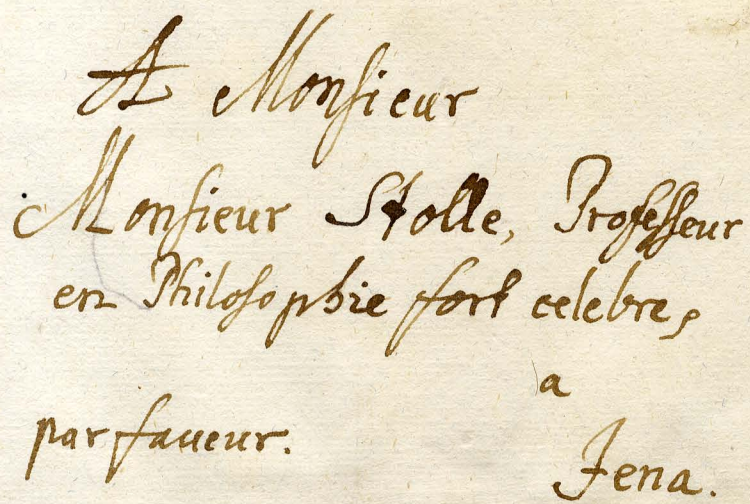 A Monsieur
Monsieur Stolle, Professeur
en Philosophie fort celebre,
a
par faveur.
Jena.